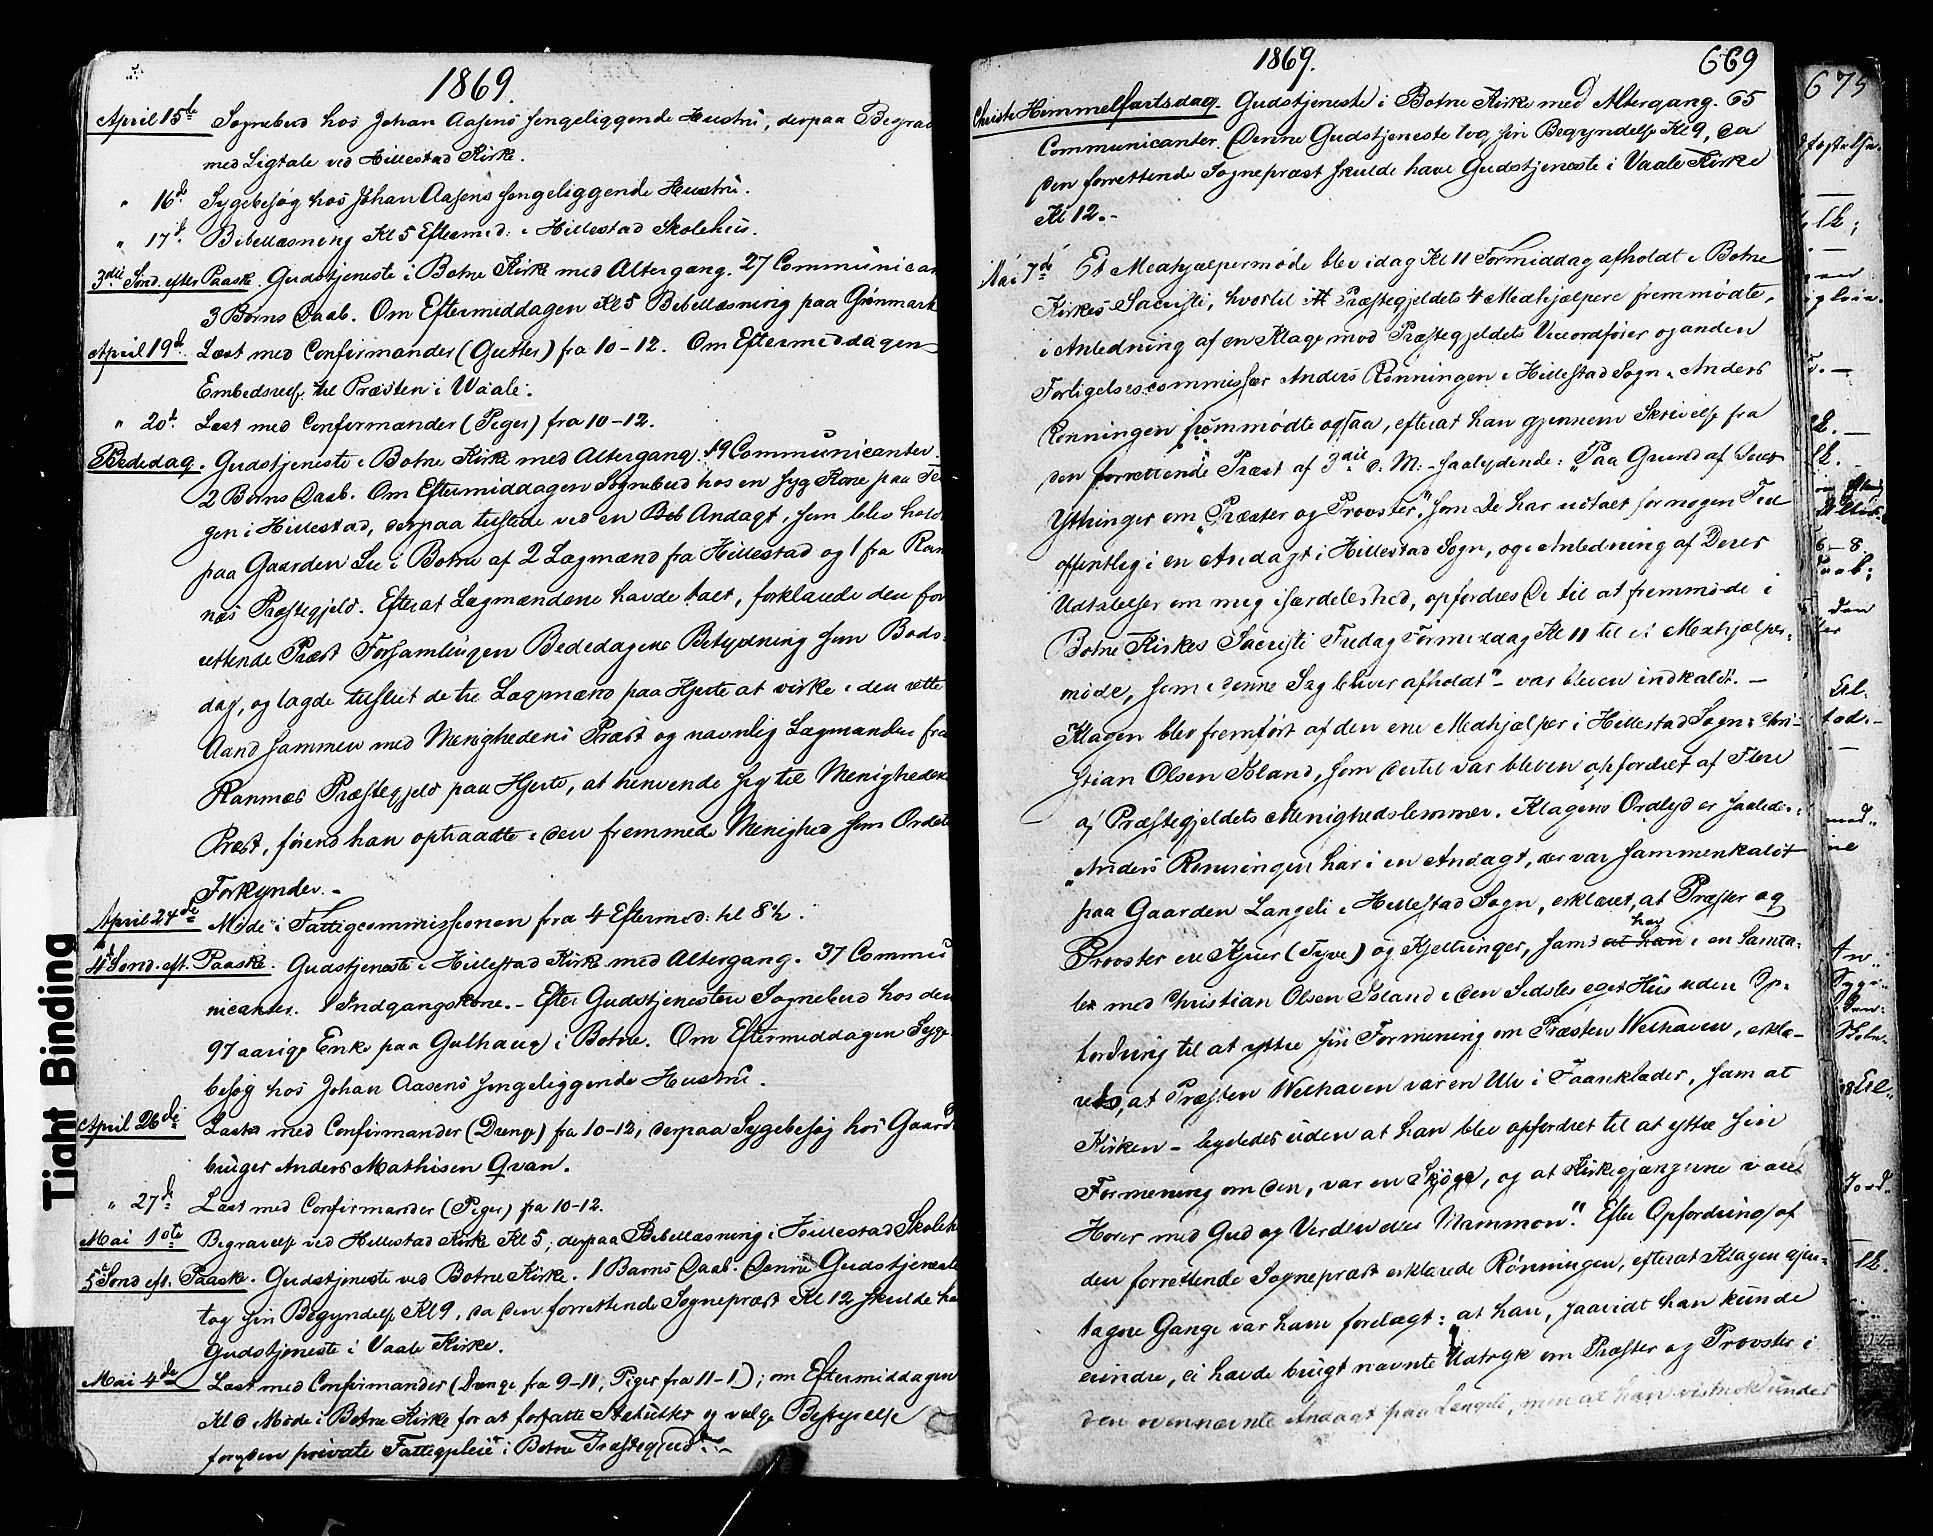 1869.
April 15de Sognebud hos Johan Aasens sengeliggende Hustru, derpaa Begrav
med Ligtale ved Hillestad Kirke.
" 16de Sygebesøg hos Johan Aasens sengeliggende Hustru.
" 17de Bibellæsning Kl 5 Eftermd: i Hillestad Skolehus.
3die Sønd. efter Paaske. Gudstjeneste i Botne Kirke med Altergang. 27 Communican
3 Børns Daab. Om Eftermiddagen Kl 5 Bibellæsning paa Grønmark
April 19de Læst med Confirmander (Gutter) fra 10-12. Om Eftermiddagen
Embedsreise til Præsten i Vaale.
" 20de Læst med Confirmander (Piger) fra 10-12.
Bededag. Gudstjeneste i Botne Kirke med Altergang. 19 Communicanter.
2 Børns Daab. Om Eftermiddagen Sognebud hos en syg Kone paa
gen i Hillestad, derpaa tilstede ved en Andagt, som blev hold
paa Gaarden Lee i Botne af 2 Lægmænd fra Hillestad og 1 fra Ram
næs Præstegjeld. Efterat Lægmændene havde talt, forklarede den for
rettende Præst Forsamlingen Bededagens Betydning som Bods-
dag, og lagde tilsidst de tre Lægmænd paa Hjerte at virke i den rette
Aand sammen med Menighedens Præst og navnlig Lægmanden fra
Ramnæs Præstegjeld paa Hjerte, at henvende sig til Menighedens
Præst, førend han optraadte i den fremmede Menighed som Ordets
Forkynder. -
April 24de Møde i Fattigcommissionen fra 4 Eftermd: til 8½.
4de Sønd. eft. Paaske. Gudstjeneste i Hillestad Kirke med Altergang. 37 Commu
nicanter. 1 Indgangskone. - Efter Gudstjenesten Sognebud hos den
97 aarige Enke paa Gulhaug i Botne. Om Eftermiddagen Syge
besøg hos Johan Aasens sengeliggende Hustru.
April 26de Læst med Confirmander (Drenge) fra 10-12, derpaa Sygebesøg hos Gaard
bruger Anders Mathisen Qvan.
" 27de Læst med Confirmander (Piger) fra 10-12.
Mai 1ste Begravelse ved Hillestad Kirke Kl 5, derpaa Bibellæsning i Hillestad Skoleh
5te Sønd eft. Paaske. Gudstjeneste ved Botne Kirke. 1 Barns Daab. Denne Gudstjeneste
tog sin Begyndelse Kl 9, da den forrettende Sognepræst Kl 12 skulde ha
Gudstjeneste i Vaale Kirke.
Mai 4de Læst med Confirmander (Drenge fra 9-11, Piger fra 11-1); om Eftermiddagen
Kl 6 Møde i Botne Kirke for at forfatte Statutter og vælge Bestyrelse
for den private Fattigpleie i Botne Præstegjeld. -
1869. 669
Christi Himmelfartsdag. Gudstjeneste i Botne Kirke med Altergang. 65
Communicanter. (Denne Gudstjeneste tog sin Begyndelse Kl 9, da
den forrettende Sognepræst skulde have Gudstjeneste i Vaale Kirke
Kl 12. -
Mai 7de Et Medhjælpermøde blev idag Kl 11 Formiddag afholdt i Botne
Kirkes Sacristi, hvortil Præstegjeldets 4 Medhjælpere fremmødte,
i Anledning af en Klage mod Præstegjeldets Viceordfører og anden
Forligelsescommissær Anders Rønningen i Hillestad Sogn. Anders
Rønningen fremmødte ogsaa, efterat han gjennem Skrivelse fra
den forrettende Præst af 3die d. M. - saalydende: "Paa Grund af Deres
Yttringer om "Præster og Provster", som De har udtalt for nogen Tid
offentlig i en Andagt i Hillestad Sogn, og i Anledning af Deres
Udtalelser om mig isærdeleshed, opfordres De til at fremmøde i
Botne Kirkes Sacristi Fredag Formiddag Kl 11 til et Medhjælper-
møde, som i denne Sag bliver afholdt" - var bleven indkaldt. -
Klagen blev fremført af den ene Medhjælper i Hillestad Sogn: Chri-
stian Olsen Island, som dertil var bleven opfordret af Flere
af Præstegjeldets Menighedslemmer. Klagens Ordlyd er saalede.:
"Anders Rønningen har i en Andagt, der var sammenkaldt
paa Gaarden Langeli i Hillestad Sogn, erklæret, at Præster og
Provster ere Kjever (Tyve) og Kjeltringer, samt at han har i en Samta-
le med Christian Olsen Island i den Sidstes eget Hus uden Op-
fordring til at yttre sin Formening om Præsten Welhaven, erklæ-
ret, at Præsten Welhaven var en Ulv i Faareklæder, samt at
Kirken - ligeledes uden at han blev opfordret til at yttre sin
Formening om den, var en Skjøge, og at Kirkegjængerne var
Horer med Gud og Verden dvs Mammon". Efter Opfordring af
den forrettende Sognepræst erklærede Rønningen, efterat Klagen gjen-
tagne Gange var ham forelagt: at han, saavidt han kunde
erindre, ei havde brugt nævnte Udtryk om Præster og Provster i
den ovennævnte Andagt paa Langeli, men at han vistnok under
675